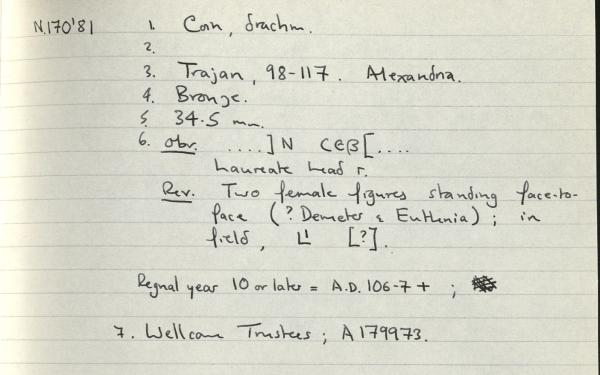 N.170'81 1. Coin, drachm.
2.
3. Trajan, 98-117. Alexandria.
4. Bronze.
5. 34.5 mm.
6. Obv. ....] N CЄB[....
Laureate head r.
Rev. Two female figures standing face-to-
face (? Demeter & Euthenia); in
field, L I [?].
Regnal year 10 or later = A.D. 106-7 + ;
7. Wellcome Trustees; A179973.